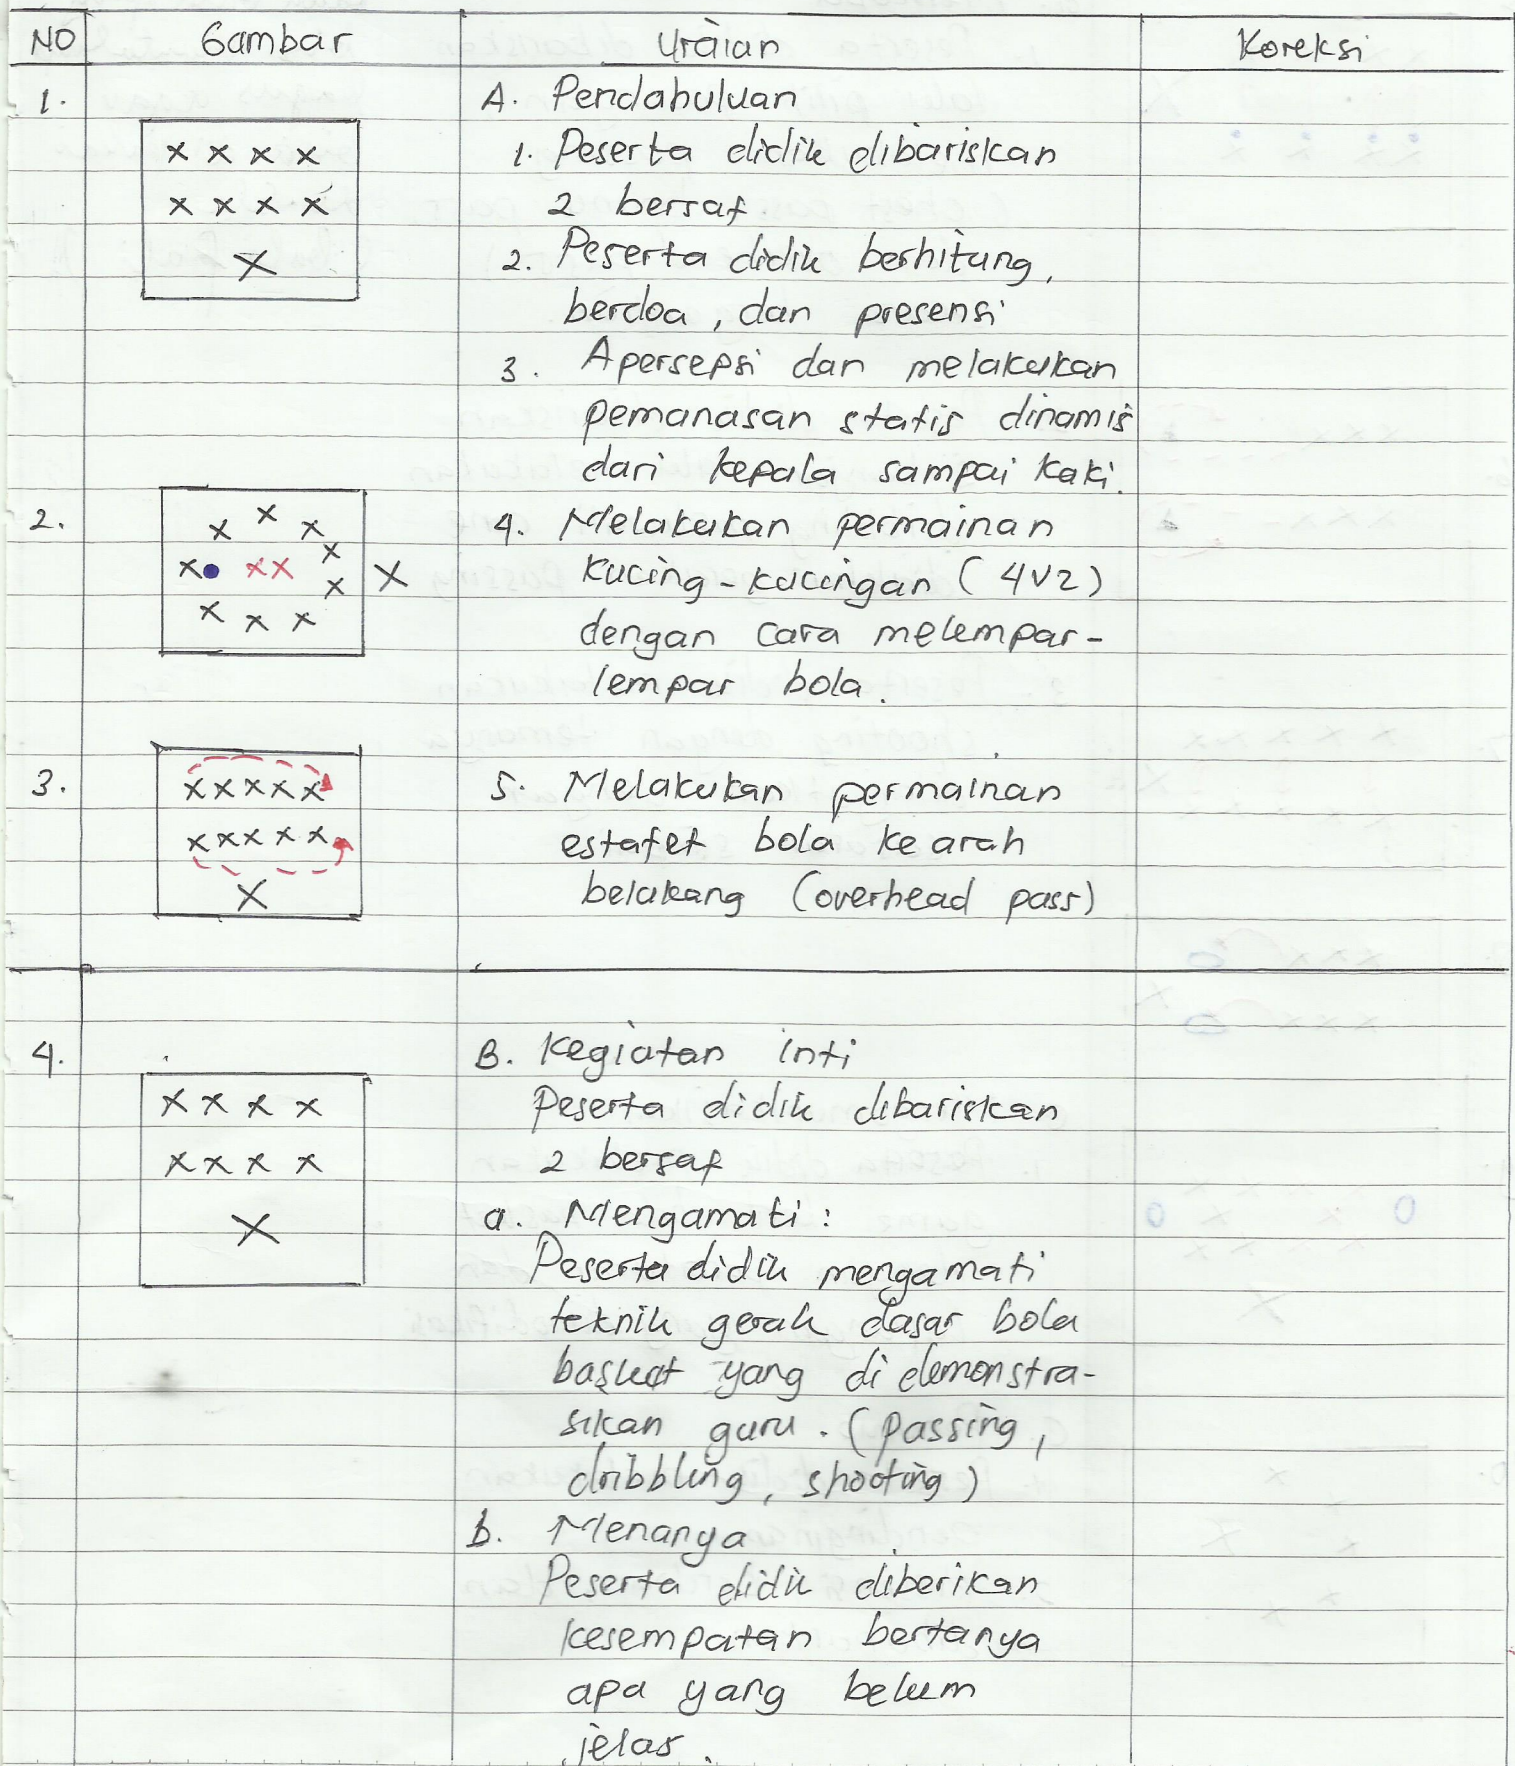 NO Gambar Uraian Koreksi
1. A. Pendahuluan
1. Peserta didik dibariskan
2 bersaf
2. Peserta didik berhitung,
berdoa, dan presensi
3. Apersepsi dan melakukan
pemanasan statis dinamis
dari kepala sampai kaki.
2. 4. Melakukan permainan
kucing-kucingan (4V2)
dengan cara melempar-
lempar bola.
3. 5. Melakukan permainan
estafet bola ke arah
belakang (overhead pass)
4. B. Kegiatan inti
Peserta didik dibariskan
2 bersaf
a. Mengamati:
Peserta didik mengamati
teknik gerak dasar bola
basket yang di demonstra-
sikan guru. (passing,
dribbling, shooting)
b. Menanya
Peserta didik diberikan
kesempatan bertanya
apa yang belum
jelas.